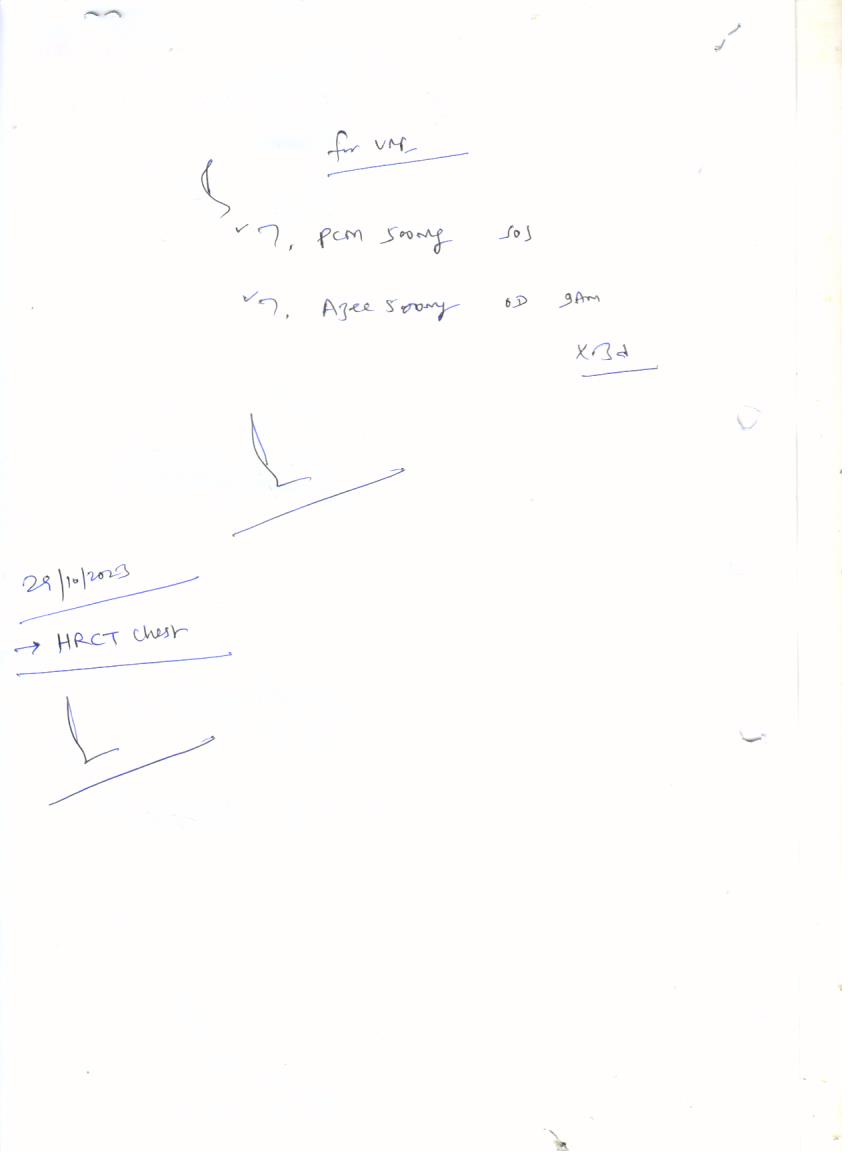 for
T. PCM 500mg SOS
T. Azee 500mg OD 9AM
x 3d
29/10/2023
→ HRCT Chest